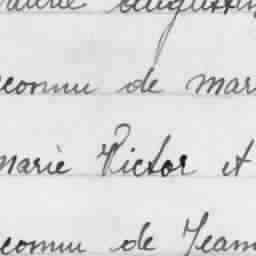 Marie Augustin
reconnu de mar
marie Victor et
reconnu de Jean